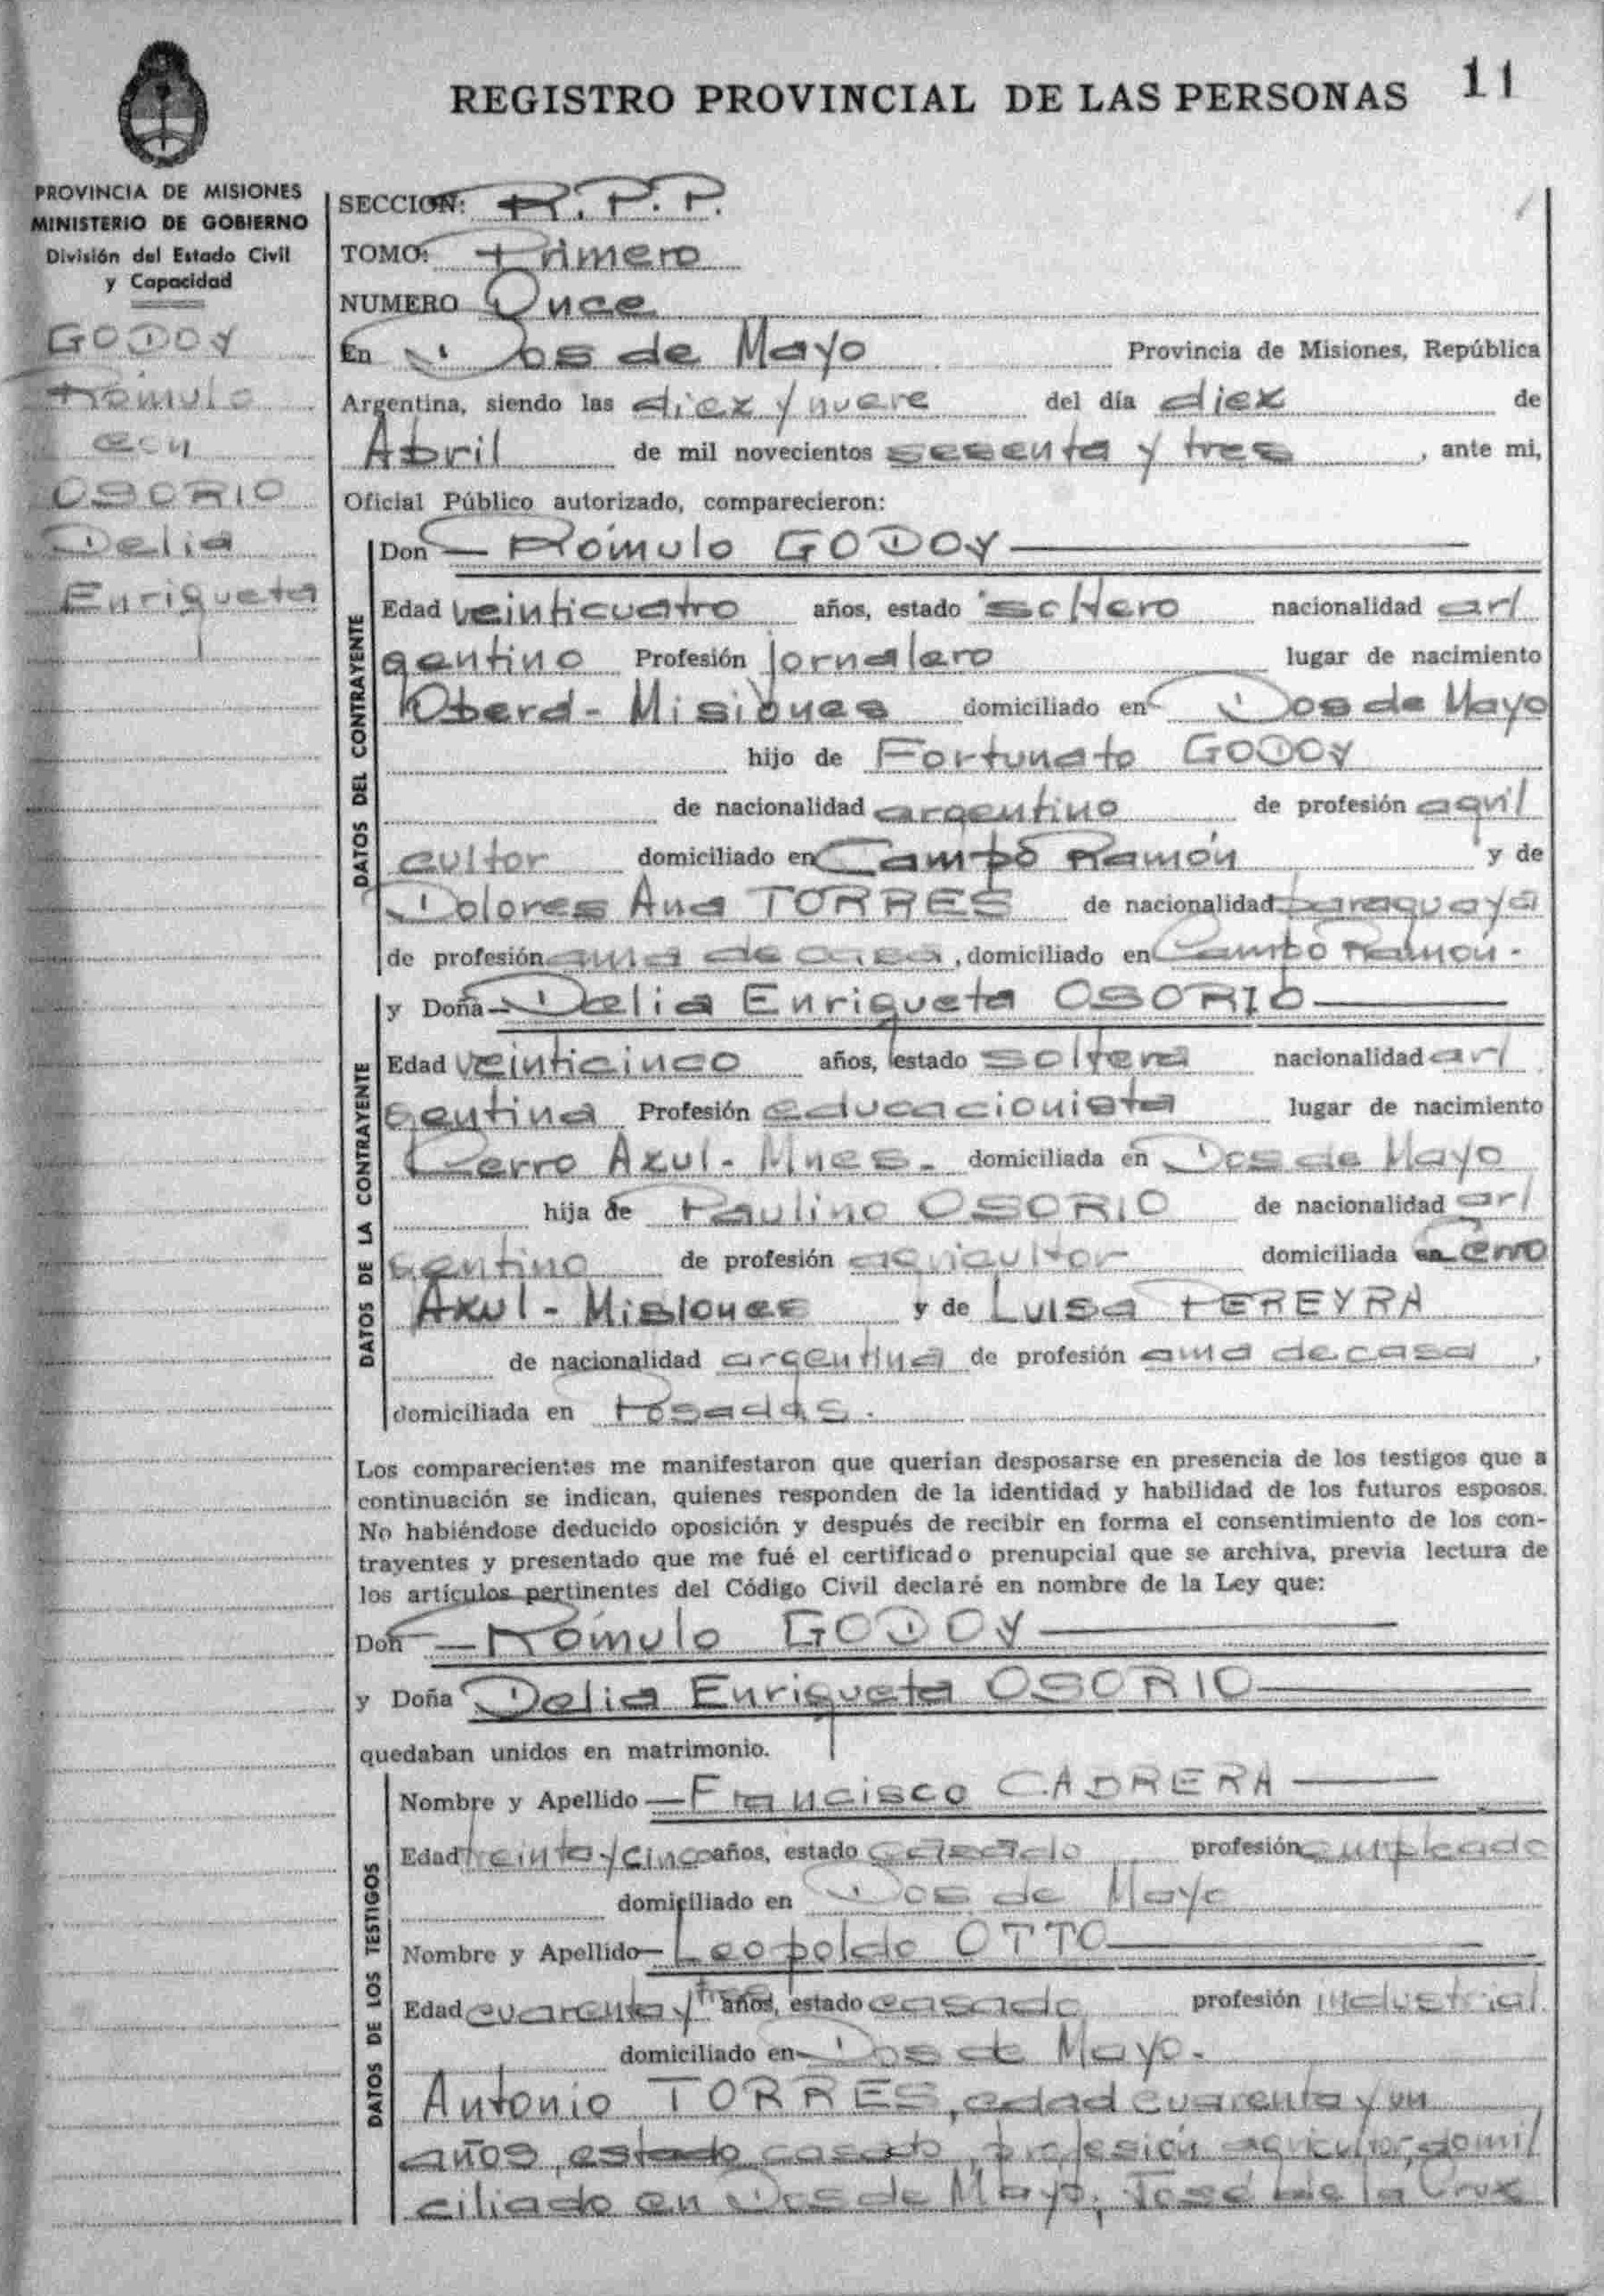 REGISTRO PROVINCIAL DE LAS PERSONAS 11
PROVINCIA DE MISIONES
MINISTERIO DE GOBIERNO
División del Estado Civil
y Capacidad
GODOY
Rómulo
con
OSORIO
Delia
Enriqueta
SECCION: R.P.P.
TOMO: Primero
NUMERO Once
En Dos de Mayo Provincia de Misiones, República
Argentina, siendo las diez y nueve del día diez de
Abril de mil novecientos sesenta y tres, ante mi,
Oficial Público autorizado, comparecieron:
DATOS DEL CONTRAYENTE
Don — Rómulo GODOY —
Edad veinticuatro años, estado soltero nacionalidad ar/
gentino Profesión jornalero lugar de nacimiento
Oberá - Misiones domiciliado en Dos de Mayo
hijo de Fortunato GODOY
de nacionalidad argentino de profesión agri/
cultor domiciliado en Campo Ramón y de
Dolores Ana TORRES de nacionalidad paraguaya
de profesión ama de casa, domiciliado en Campo Ramón.-
DATOS DE LA CONTRAYENTE
y Doña — Delia Enriqueta OSORIO —
Edad veinticinco años, estado soltera nacionalidad ar/
gentina Profesión educacionista lugar de nacimiento
Cerro Azul - Mnes. - domiciliada en Dos de Mayo
hija de Paulino OSORIO de nacionalidad ar/
gentino de profesión agricultor domiciliada en Cerro
Azul - Misiones y de Luisa PEREYRA
de nacionalidad argentina de profesión ama de casa,
domiciliada en Posadas.
Los comparecientes me manifestaron que querian desposarse en presencia de los testigos que a
continuación se indican, quienes responden de la identidad y habilidad de los futuros esposos.
No habiéndose deducido oposición y después de recibir en forma el consentimiento de los con-
trayentes y presentado que me fué el certificado prenupcial que se archiva, previa lectura de
los artículos pertinentes del Código Civil declaré en nombre de la Ley que:
Don — Rómulo GODOY —
y Doña Delia Enriqueta OSORIO —
quedaban unidos en matrimonio.
DATOS DE LOS TESTIGOS
Nombre y Apellido — Francisco CABRERA —
Edad treinta y cinco años, estado casado profesión empleado
domiciliado en Dos de Mayo
Nombre y Apellido — Leopoldo OTTO —
Edad cuarenta y tres años, estado casado profesión industrial
domiciliado en Dos de Mayo.-
Antonio TORRES, edad cuarenta y un
años, estado casado, profesión agricultor, domi/
ciliado en Dos de Mayo; José de la Cruz